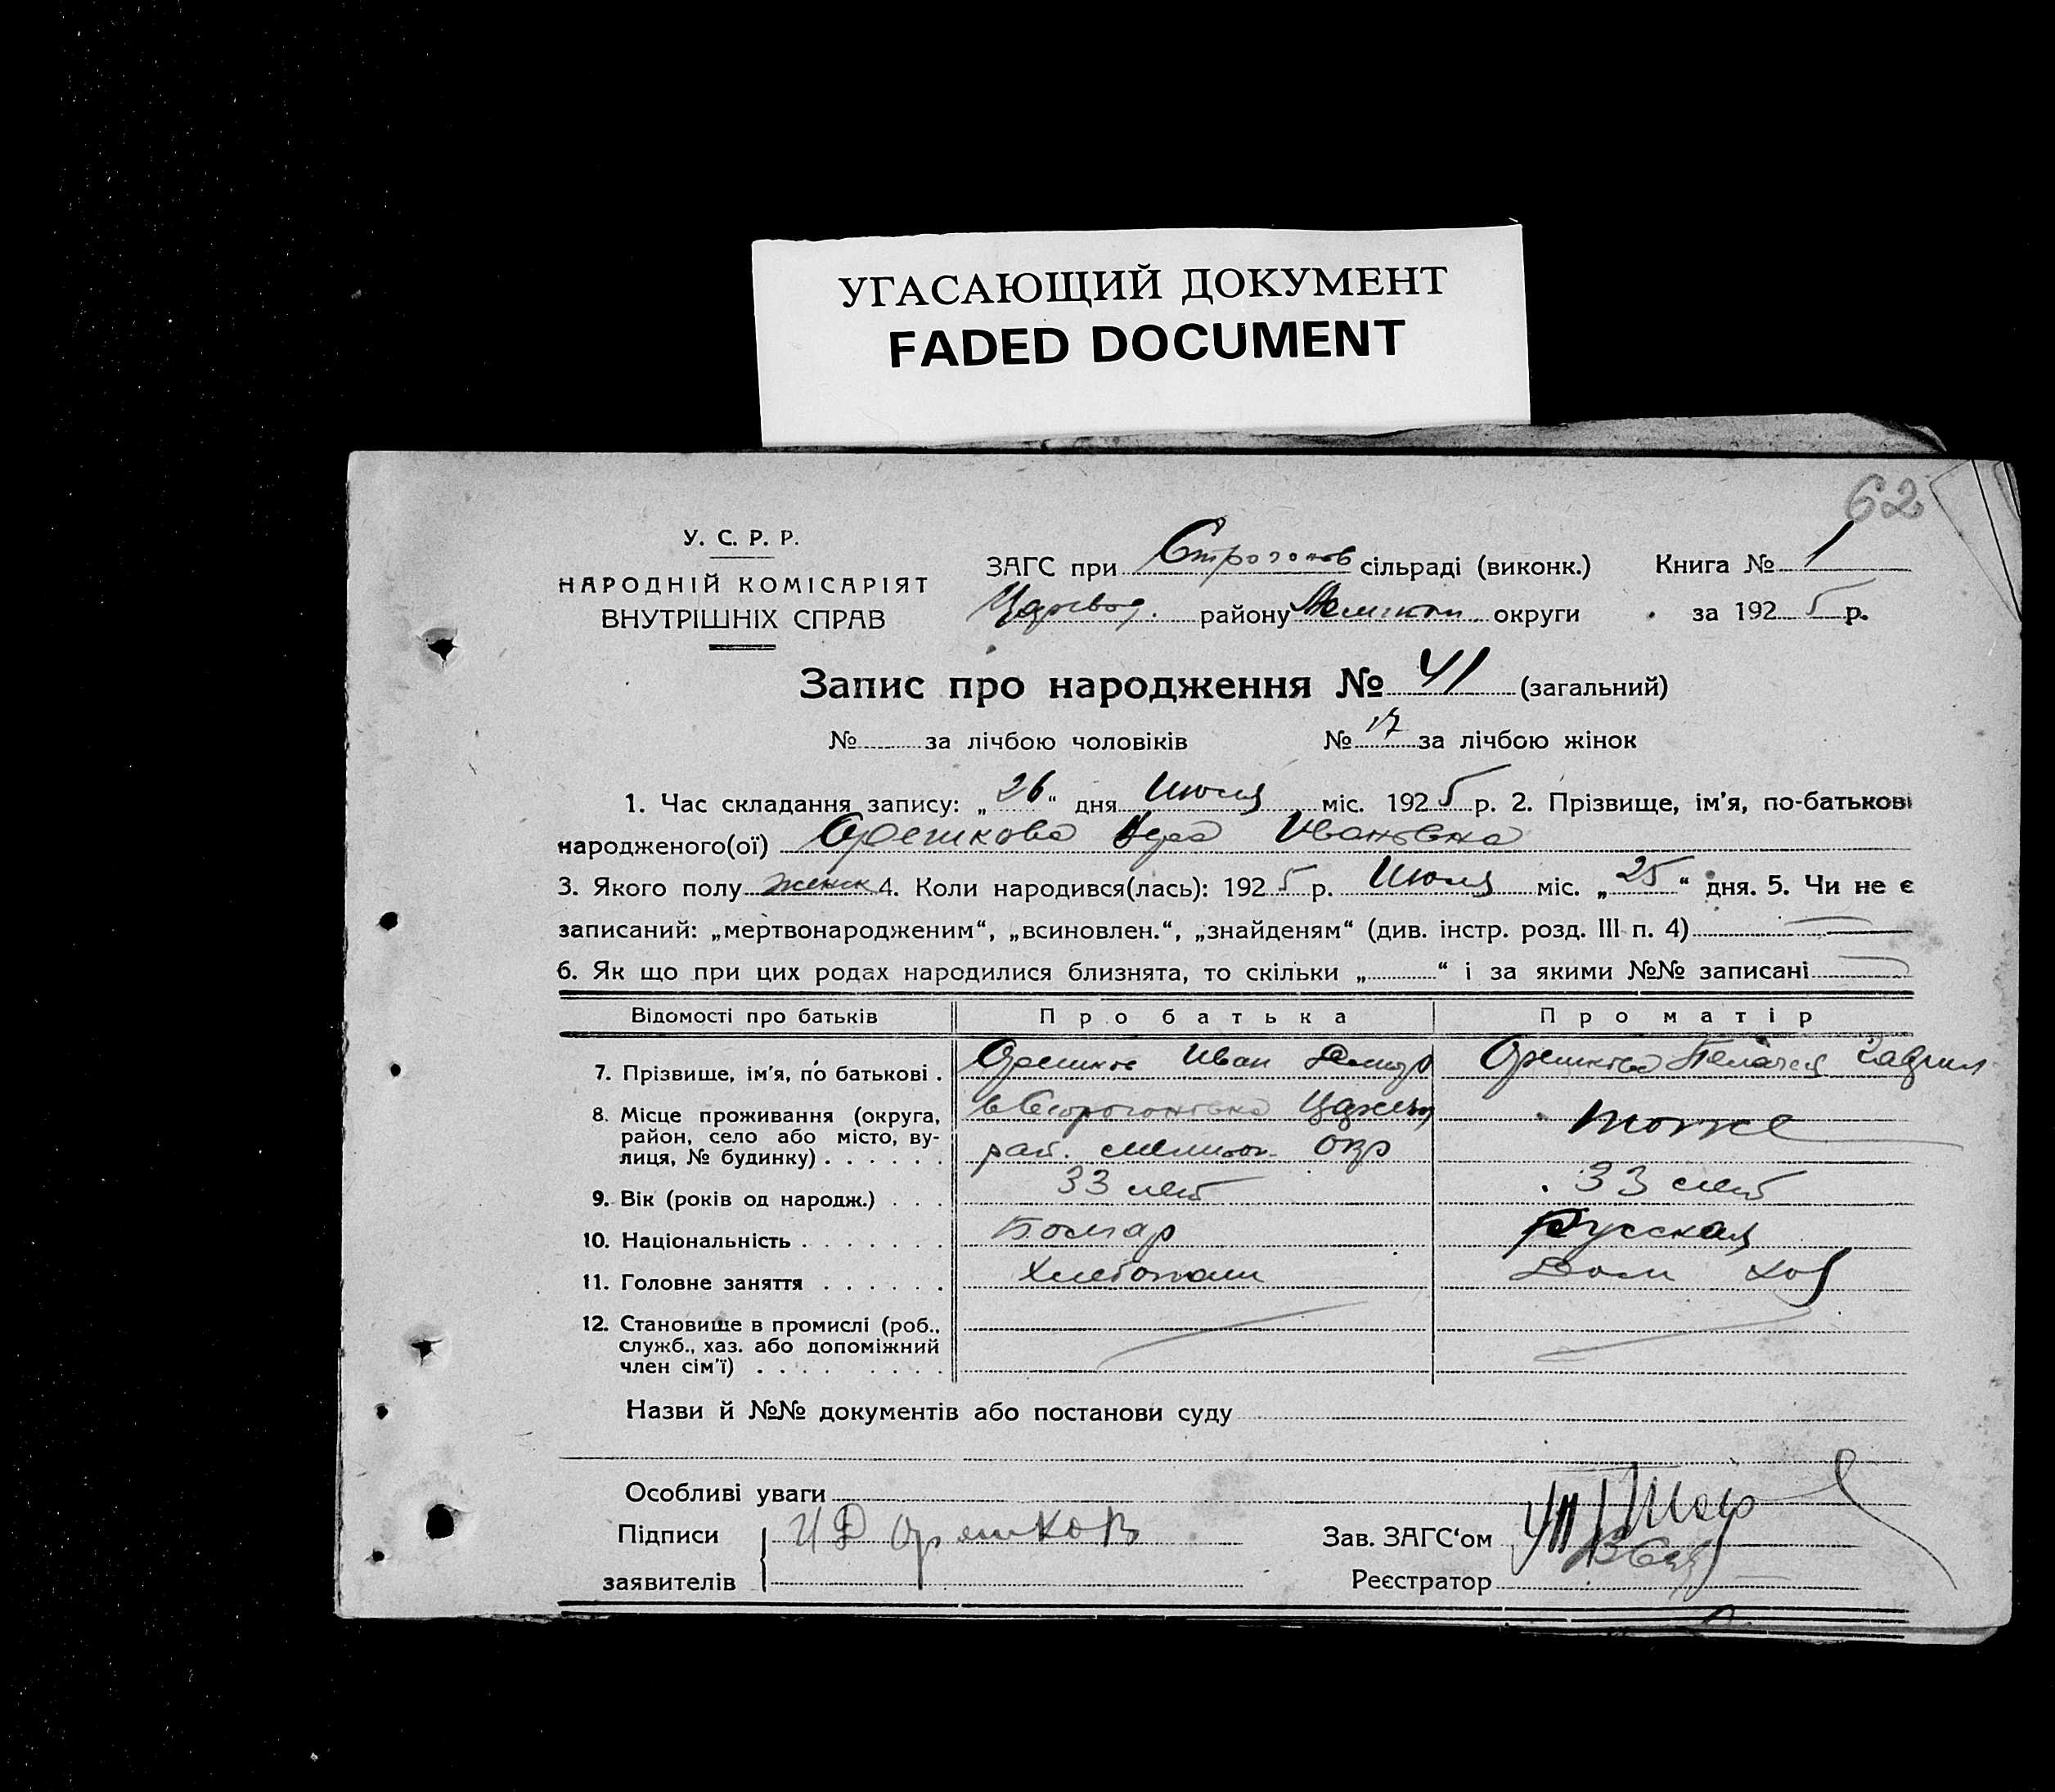 УГАСАЮЩИЙ ДОКУМЕНТ
FADED DOCUMENT
62
У. С. Р. Р.
НАРОДНІЙ КОМІСАРІЯТ
ВНУТРІШНІХ СПРАВ
ЗАГС при Строганов сільраді (виконк.) Книга № 1
району округи за 1925 р.
Запис про народження № 41 (загальний)
№ за лічбою чоловіків № 17 за лічбою жінок
1. Час складання запису: „26“ дня Июля міс. 1925 р. 2. Прізвище, ім'я, по-батькові
народженого(ої) Орешкова Вера Ивановна
3. Якого полу женск 4. Коли народився(лась): 1925 р. Июля міс. „25“ дня. 5. Чи не є
записаний: „мертвонародженим“, „всиновлен.“, „знайденям“ (див. інстр. розд. III п. 4)
6. Як що при цих родах народилися близнята, то скільки „ “ і за якими №№ записані
Відомості про батьків Про батька Про матір
7. Прізвище, ім'я, по батькові . Орешков Иван Орешкова Пелагея Гаврил
8. Місце проживання (округа, район, село або місто, вулиця, № будинку) . . . . . . рай. мелитоп. окр тоже
9. Вік (років од народж.) . . . 33 лет 33 лет
10. Національність . . . . . . . Болгар Русская
11. Головне заняття . . . . . . Хлебопаш Дом хоз
12. Становище в промислі (роб., служб., хаз. або допоміжний член сім'ї) . . . . . . . .
Назви й №№ документів або постанови суду
Особливі уваги
Підписи И Д Орешков Зав. ЗАГС'ом
заявителів Реєстратор